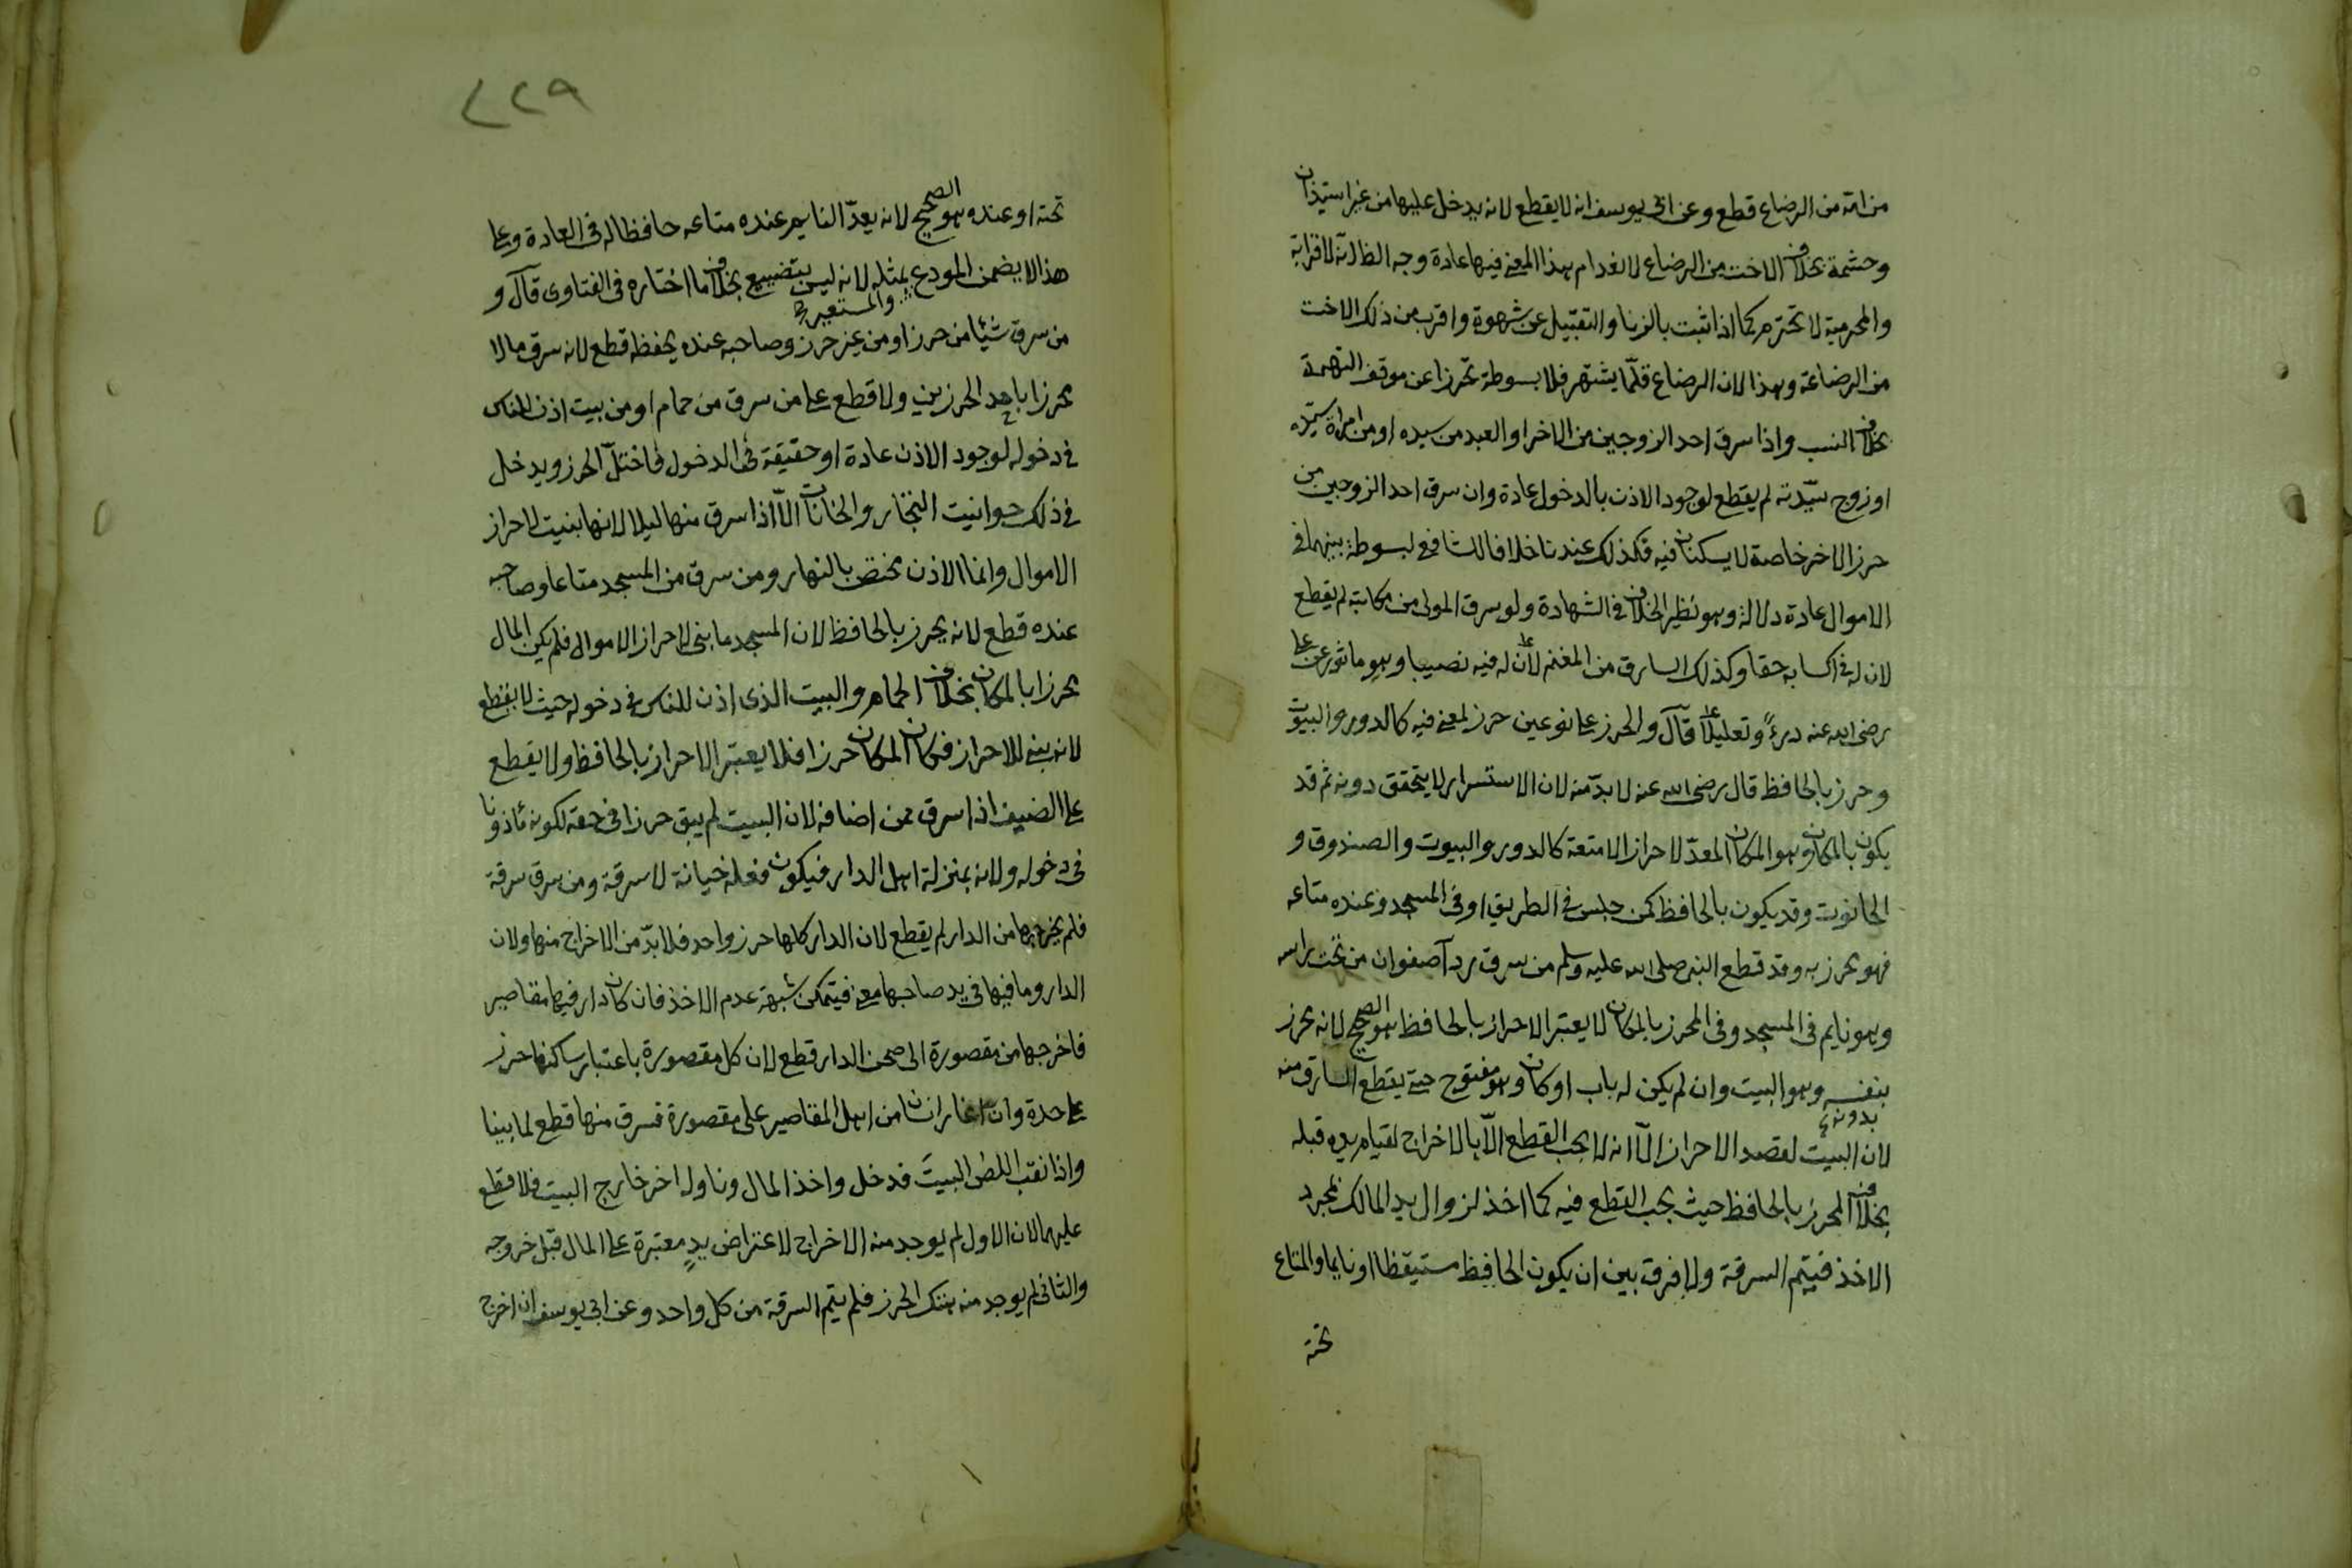 من امه من الرضاع قطع وعن ابى يوسف انه لا يقطع لانه يدخل عليها من غير استيذان
وحشمة بخلاف الاخت من الرضاع لانعدام هذا المعنى فيها عادة وجه الظاهر انه لا قرابة
والمحرمية لا تحترم كما اذا ثبت بالزنا والتقبيل عن شهوة واقرب من ذلك الاخت
من الرضاعة وهذا لان الرضاع قلّما يشتهر فلا بسوطة تحرزا عن موقف التهمة
بخلاف النسب واذا سرق احد الزوجين من الاخر او العبد من سيده او من امراة سيّده
او زوج سيّدته لم يقطع لوجود الاذن بالدخول عادة وان سرق احد الزوجين من
حرز الاخر خاصة لا يسكنان فيه فكذلك عندنا خلافا للشافعى لبسوطة بينهما فى
الاموال عادة دلالة وهو نظير الخلاف فى الشهادة ولو سرق المولى من مكاتبه لم يقطع
لان له فى اكسابه حقا وكذلك السارق من المغنم لان له فيه نصيبا وهو ماثور عن على
رضى الله عنه درءً وتعليلا قآل والحرز على نوعين حرز لمعنى فيه كالدور والبيوت
وحرز بالحافظ قال رضى الله عنه لا بدّ منه لان الاستسرار لا يتحقق دونه ثم قد
يكون بالمكان وهو المكان المعدّ لاحراز الامتعة كالدور والبيوت والصندوق و
الحانوت وقد يكون بالحافظ كمن جلس فى الطريق او فى المسجد وعنده متاعه
فهو محرز به وقد قطع النبى صلى الله عليه وسلم من سرق رداء صفوان من تحت راسه
وهو نايم فى المسجد وفى المحرز بالمكان لا يعتبر الاحراز بالحافظ هو الصحيح لانه محرز
بدونه
بنفسه وهو البيت وان لم يكن له باب او كان وهو مفتوح حتى يقطع السارق منه
لان البيت لقصد الاحراز الّا انه لا يجب القطع الّا بالاخراج لقيام يده قبله
بخلاف المحرز بالحافظ حيث يجب القطع فيه كما اخذ لزوال يد المالك بمجرد
الاخذ فيتم السرقة ولا فرق بين ان يكون الحافظ مستيقظا او نايما والمتاع
تحته
٤٢٩
تحته او عنده هو الصحيح لانه يعدّ النايم عنده متاعه حافظا له فى العادة وعلى
هذا لا يضمن المودع والمستعير بمثله لانه ليس بتضييع بخلاف ما اختاره فى الفتاوى قآل و
من سرق شيئا من حرز او من غير حرز وصاحبه عنده يحفظه قطع لانه سرق مالا
محرزا باحد الحرزين ولا قطع على من سرق من حمام او من بيت اذن للناس
فى دخوله لوجود الاذن عادة او حقيقة فى الدخول فاختلّ الحرز ويدخل
فى ذلك حوانيت التجار والخانات الّا اذا سرق منها ليلا لانها بنيت لاحراز
الاموال وانما الاذن يختص بالنهار ومن سرق من المسجد متاعا وصاحبه
عنده قطع لانه يحرز بالحافظ لان المسجد ما بنى لاحراز الاموال فلم يكن المال
محرزا بالمكان بخلاف الحمام والبيت الذى اذن للناس فى دخوله حيث لا يقطع
لانه بنى للاحراز فكان المكان حرزا فلا يعتبر الاحراز بالحافظ ولا يقطع
على الضيف اذا سرق ممن اضافه لان البيت لم يبق حرزا فى حقه لكونه مأذونا
فى دخوله ولانه بمنزلة اهل الدار فيكون فعله خيانة لا سرقة ومن سرق سرقة
فلم يخرجها من الدار لم يقطع لان الدار كلها حرز واحد فلا بدّ من الاخراج منها ولان
الدار وما فيها فى يد صاحبها معنى فيتمكن شبهة عدم الاخذ فان كان دار فيها مقاصير
فاخرجها من مقصورة الى صحن الدار قطع لان كل مقصورة باعتبار ساكنها حرز
على حدة وان اغار انسان من اهل المقاصير على مقصورة فسرق منها قطع لما بينا
واذا نقب اللص البيتَ فدخل واخذ المال وناوله اخر خارج البيت فلا قطع
عليهما لان الاول لم يوجد منه الاخراج لاعتراض يدٍ معتبرة على المال قبل خروجه
والثانى لم يوجد منه هتك الحرز فلم يتم السرقة من كل واحد وعن ابى يوسف ان اخرج